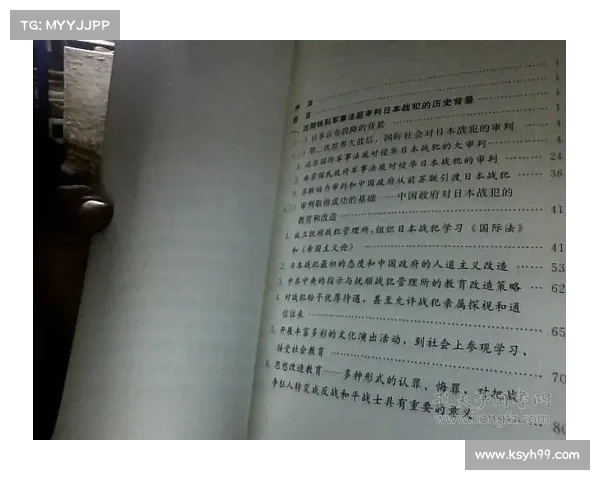 TG: MYYJJPP
序言 1
前言 1
一、沈阳特别军事法庭审判日本战犯的历史背景 1
(一)日本宣布投降的背景 1
(二)第二次世界大战后,国际社会对日本战犯的审判 4
1. 远东国际军事法庭对侵华日本战犯的大审判
2. 南京国民政府军事法庭对侵华日本战犯的审判 24
3. 苏联伯力审判和中国政府从前苏联引渡日本战犯 36
(三)审判取得成功的基础——中国政府对日本战犯的
教育和改造 41
1. 成立抚顺战犯管理所,组织日本战犯学习《国际法》
和《帝国主义论》 41
2. 日本战犯最初的态度和中国政府的人道主义改造 53
3. 中共中央的指示与抚顺战犯管理所的教育改造策略 62
4. 对战犯给予优厚待遇,甚至允许战犯亲属探视和通
信往来 65
5. 开展丰富多彩的文化演出活动,到社会上参观学习,
接受社会教育 70
6. 思想改造教育——多种形式的认罪、悔罪,对把战
争狂人转变成反战和平战士具有重要的意义 80
孔夫子旧书网
kongfz.com
www.ksyh99.com